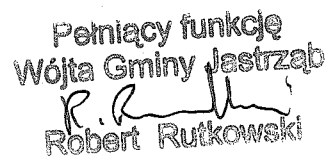 Pełniący funkcję
Wójta Gminy Jastrząb
R. Rutkowski
Robert Rutkowski